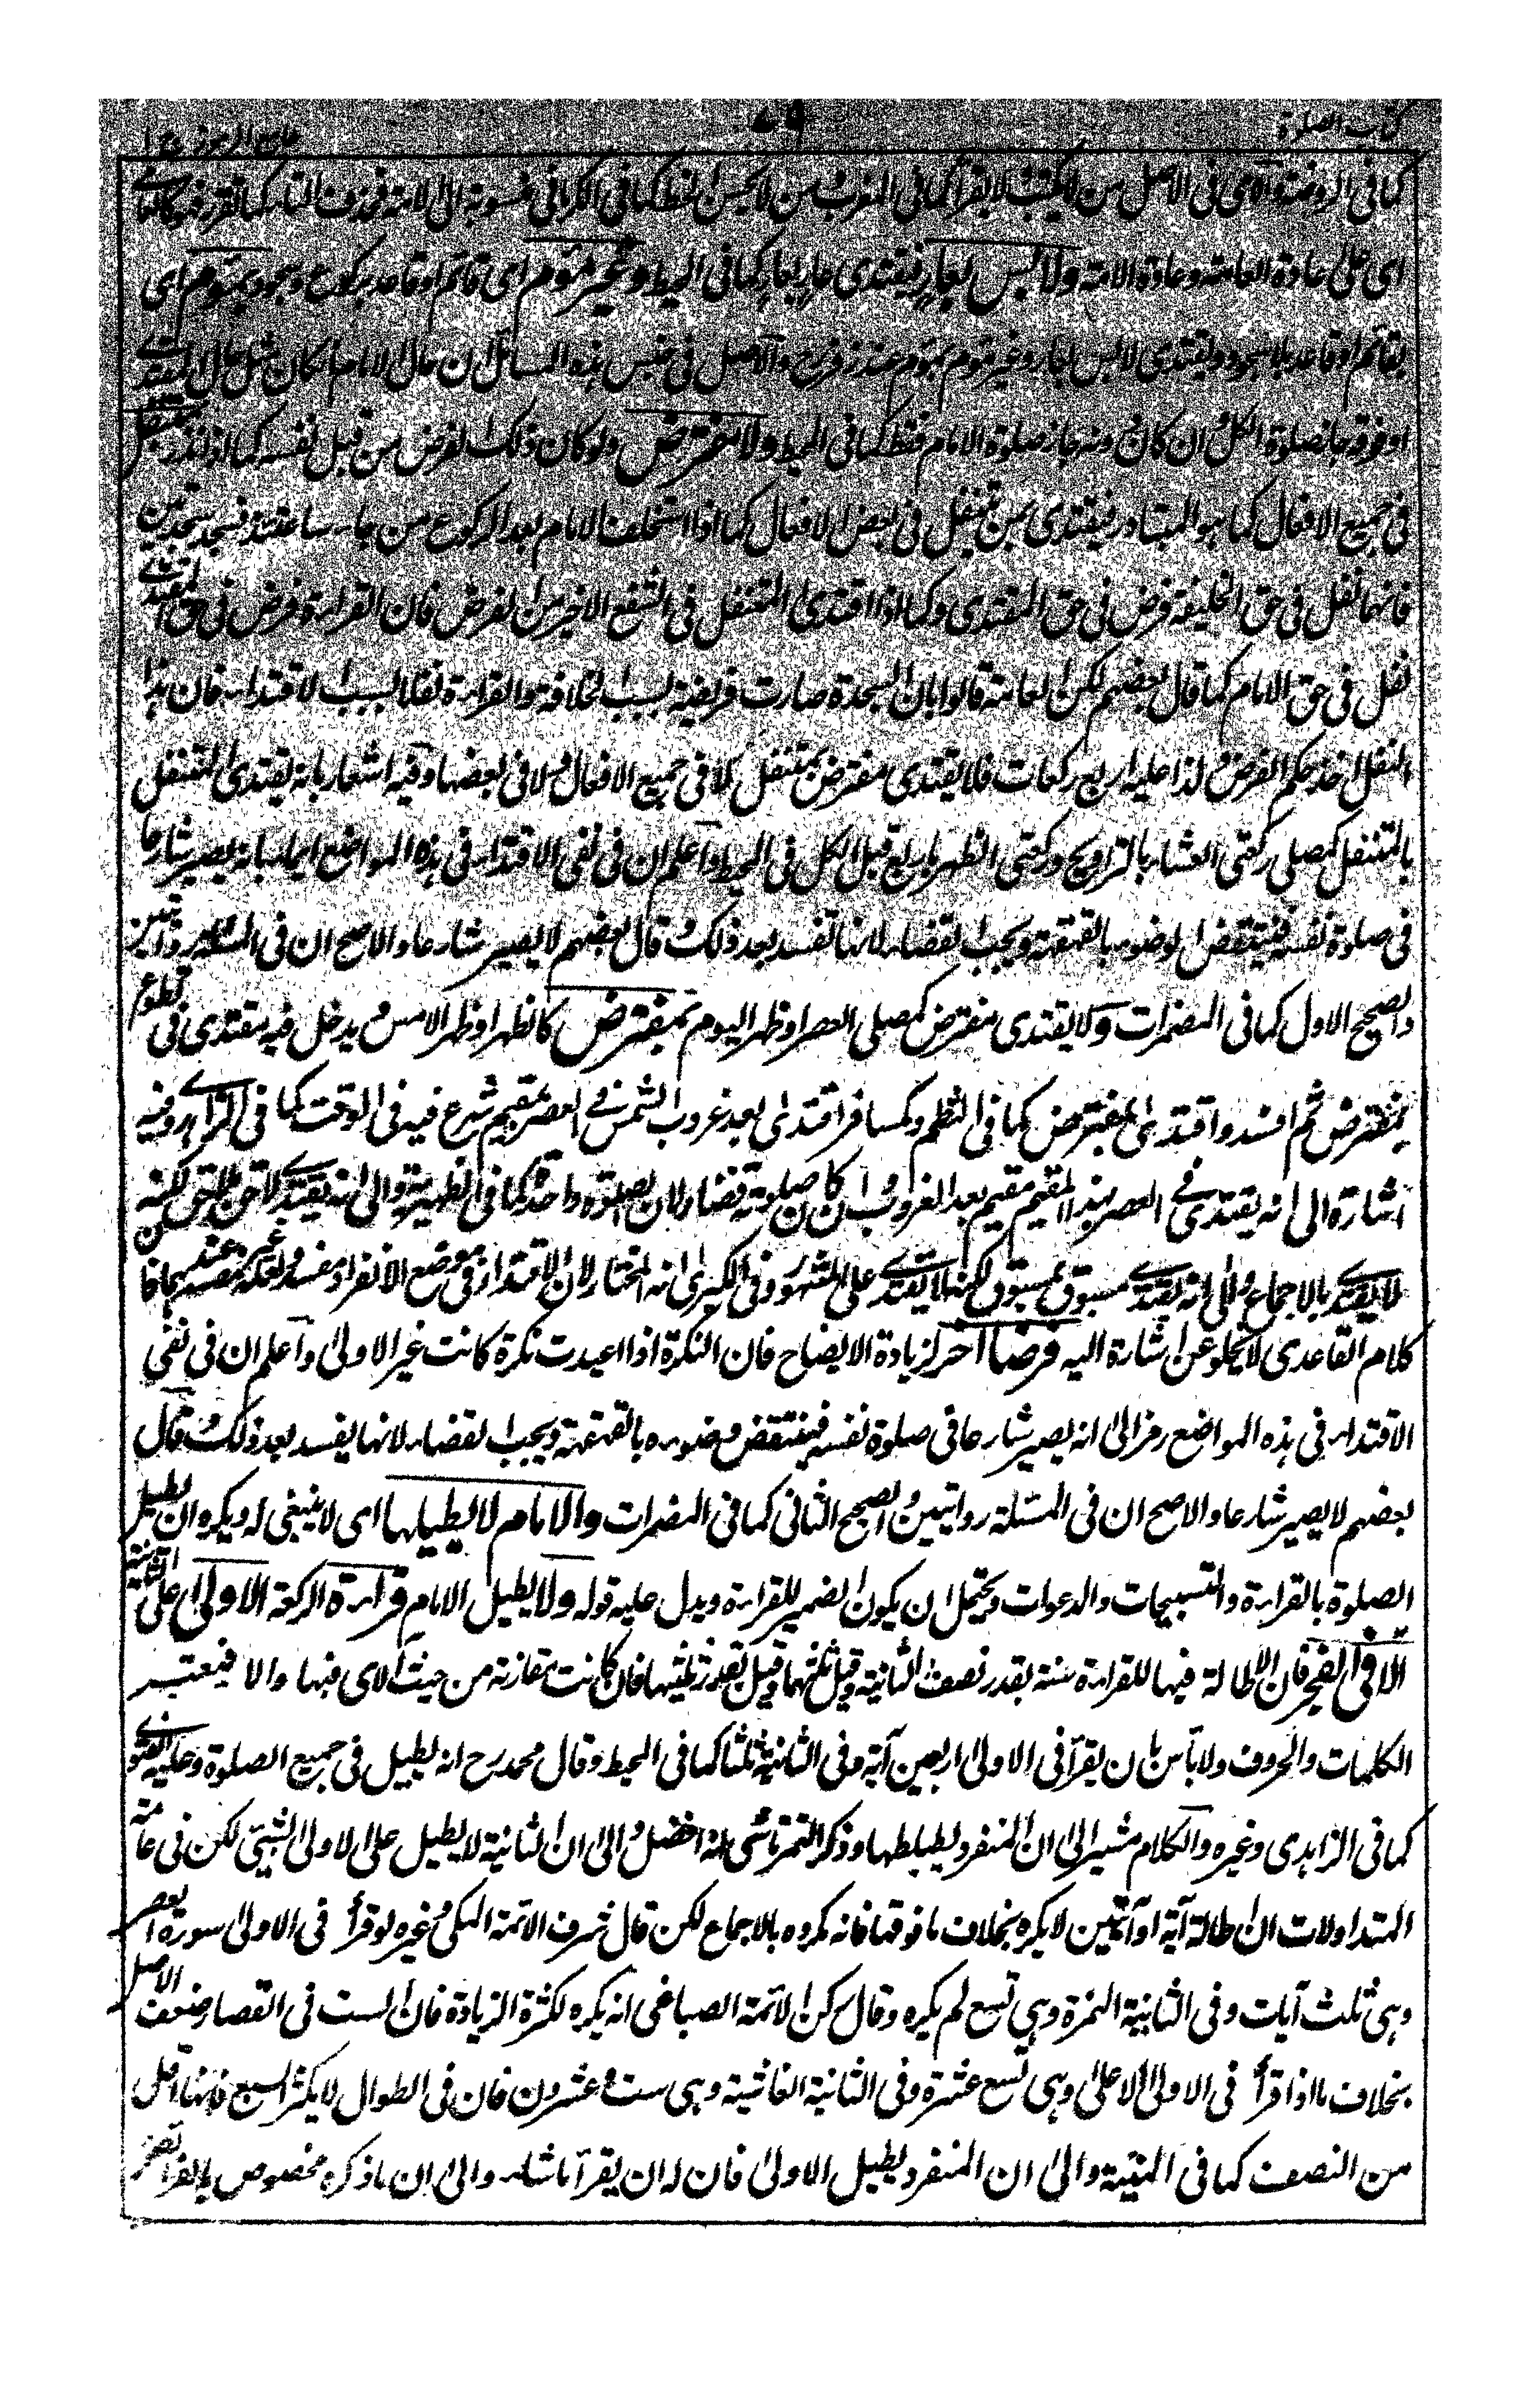 كتاب الصلوة ٧٩ جامع الرموز ج ١
كما فى الروضة والامى فى الاصل من لا يكتب ولا يقرأ كما فى المغرب من لا يحسن الخط كما فى الكرمانى منسوبة الى الامة فحذف التاء
اى على عادة العامة وعادة الامة ولا لابس بعار فيقتدى عار بعار كما فى المحيط وغير مؤم اى قائم او قاعد بركوع وسجود بمؤم اى
بقائم او قاعد بلا سجود ويقتدى لابس بعار وغير مؤم بمؤم عند زفر رح والاصل فى جنس هذه المسائل ان حال الامام ان كان مثل حال المقتدى
او فوقه جاز صلوة الكل وان كان دونه جاز صلوة الامام فقط كما فى المحيط ولا مفترض ولو كان ذلك الفرض من قبل نفسه كما اذا نذر بمتنفل
فى جميع الافعال كما هو المتبادر فيقتدى بمن تنفل فى بعض الافعال كما اذا استخلف الامام بعد الركوع من جاء ساعتئذ فيسجد سجدتين
فانهما نفل فى حق الخليفة فرض فى حق المقتدى وكما اذا اقتدى المتنفل فى الشفع الاخير من الفرض فان القراءة فرض فى حق المقتدى
نفل فى حق الامام كما قال بعضهم لكن العامة قالوا بان السجدة صارت فريضة بسبب الخلافة والقراءة نفلا بسبب الاقتداء فان هذا
النفل اخذ حكم الفرض ولذا عليه اربع ركعات فلا يقتدى مفترض بمتنفل لا فى جميع الافعال ولا فى بعضها وفيه اشعار بانه يقتدى المتنفل
بالمتنفل كمصلى ركعتى العشاء بالتراويح وركعتى الظهر باربع قبل الكل فى المحيط واعلم ان فى نفى الاقتداء فى هذه المواضع ايماء بانه يصير شارعا
فى صلوة نفسه فينتقض الوضوء بالقهقهة ويجب القضاء لانها تفسد بعد ذلك وقال بعضهم لا يصير شارعا والاصح ان فى المسئلة روايتين
والصحيح الاول كما فى المضمرات ولا يقتدى مفترض كمصلى العصر او ظهر اليوم بمفترض كالظهر او ظهر الامس ويدخل فيه مقتدى فى تطوع
بمفترض ثم افسد واقتدى بمفترض كما فى النظم وكمسافر اقتدى بعد غروب الشمس فى العصر بمقيم شرع فيه فى الوقت كما فى الزاهدى وفيه
اشارة الى انه يقتدى فى العصر بهذا المقيم مقيم بعد الغروب وان كان صلوته قضاء لان الصلوة واحدة كما فى الظهيرية والى انه يقتدى لاحق بلاحق لكنه
لا يقتدى بالاجماع والى انه يقتدى مسبوق بمسبوق لكنه لا يقتدى على المشهور وفى الكبرى انه المختار لان الاقتداء فى موضع الانفراد مفسد
كلام القاعدى لا يخلو عن اشارة اليه فرضا آخر لزيادة الايضاح فان النكرة اذا اعيدت نكرة كانت غير الاولى واعلم ان فى نفى
الاقتداء فى هذه المواضع رمزا الى انه يصير شارعا فى صلوة نفسه فينتقض وضوءه بالقهقهة ويجب القضاء لانها يفسد بعد ذلك وقال
بعضهم لا يصير شارعا والاصح ان فى المسئلة روايتين والصحيح الثانى كما فى المضمرات والامام لا يطيلها اى لا ينبغى له ويكره ان يطيل
الصلوة بالقراءة والتسبيحات والدعوات ويحتمل ان يكون الضمير للقراءة ويدل عليه قوله ولا يطيل الامام قراءة الركعة الاولى على الثانية
الا فى الفجر فان الاطالة فيها للقراءة سنة بقدر نصف الثانية وقيل ثلثها وقيل بقدر ثلثيها فان كانت متقاربة من حيث الآى فبها والا فيعتبر
الكلمات والحروف ولا بأس بان يقرأ فى الاولى اربعين آية وفى الثانية ثلثا كما فى المحيط وقال محمد رح انه يطيل فى جميع الصلوة وعليه الفتوى
كما فى الزاهدى وغيره والكلام مشير الى ان المنفرد يطيلها وذكر التمرتاشى انه افضل والى ان الثانية لا يطيل على الاولى بشئ لكن فى عامة
المتداولات ان اطالة آية او آيتين لا يكره بخلاف ما فوقها فانه مكروه بالاجماع لكن قال شرف الائمة المكى وغيره لو قرأ فى الاولى سورة العصر
وهى ثلث آيات وفى الثانية الهمزة وهى تسع لم يكره وقال ركن الائمة الصباغى انه يكره لكثرة الزيادة فان الست فى القصار ضعف الاصل
بخلاف ما اذا قرأ فى الاولى الاعلى وهى تسع عشرة وفى الثانية الغاشية وهى ست وعشرون فان فى الطوال لا يكثر السبع فانها اقل
من النصف كما فى المنية والى ان المنفرد يطيل الاولى فان له ان يقرأ ما شاء والى ان ما ذكره مخصوص بالفرائض